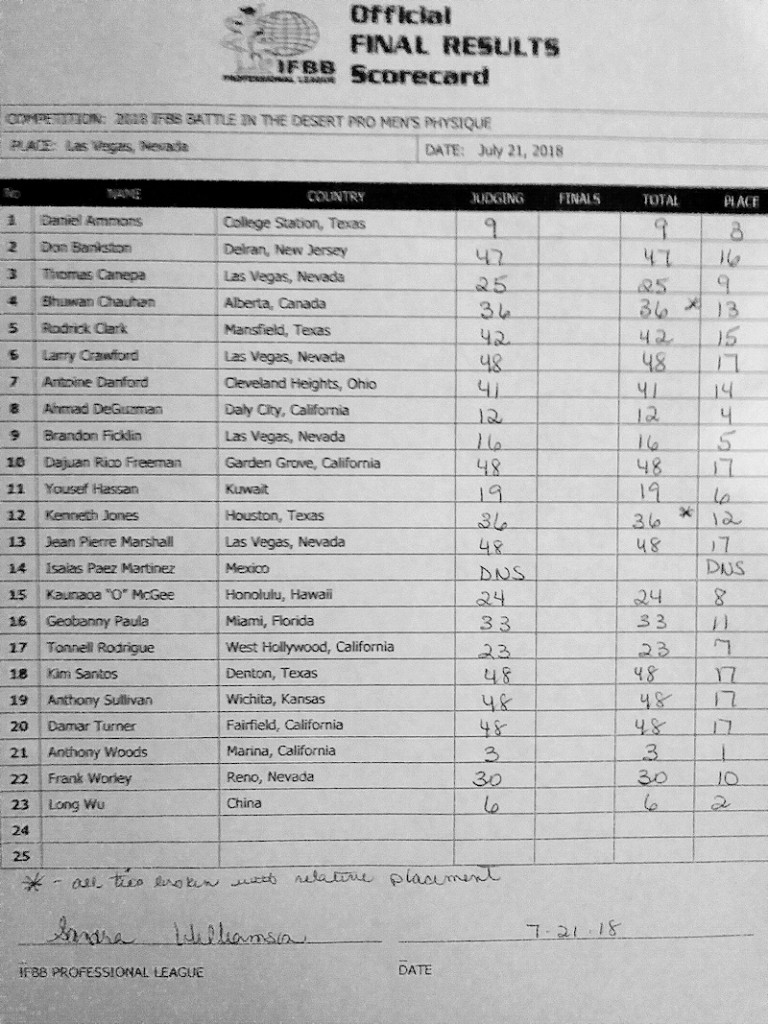 Official
FINAL RESULTS
Scorecard
IFBB
PROFESSIONAL LEAGUE
COMPETITION: 2018 IFBB BATTLE IN THE DESERT PRO MEN'S PHYSIQUE
PLACE: Las Vegas, Nevada DATE: July 21, 2018
No NAME COUNTRY JUDGING FINALS TOTAL PLACE
1 Daniel Ammons College Station, Texas 9 9 3
2 Don Bankston Delran, New Jersey 47 47 16
3 Thomas Canepa Las Vegas, Nevada 25 25 9
4 Bhuwan Chauhan Alberta, Canada 36 36 * 13
5 Rodrick Clark Mansfield, Texas 42 42 15
6 Larry Crawford Las Vegas, Nevada 48 48 17
7 Antoine Danford Cleveland Heights, Ohio 41 41 14
8 Ahmad DeGuzman Daly City, California 12 12 4
9 Brandon Ficklin Las Vegas, Nevada 16 16 5
10 Dajuan Rico Freeman Garden Grove, California 48 48 17
11 Yousef Hassan Kuwait 19 19 6
12 Kenneth Jones Houston, Texas 36 36 * 12
13 Jean Pierre Marshall Las Vegas, Nevada 48 48 17
14 Isaias Paez Martinez Mexico DNS DNS
15 Kaunaoa "O" McGee Honolulu, Hawaii 24 24 8
16 Geobanny Paula Miami, Florida 33 33 11
17 Tonnell Rodrigue West Hollywood, California 23 23 7
18 Kim Santos Denton, Texas 48 48 17
19 Anthony Sullivan Wichita, Kansas 48 48 17
20 Damar Turner Fairfield, California 48 48 17
21 Anthony Woods Marina, California 3 3 1
22 Frank Worley Reno, Nevada 30 30 10
23 Long Wu China 6 6 2
24
25
* - all ties broken with relative placement
Sandra Williamson 7-21-18
IFBB PROFESSIONAL LEAGUE DATE